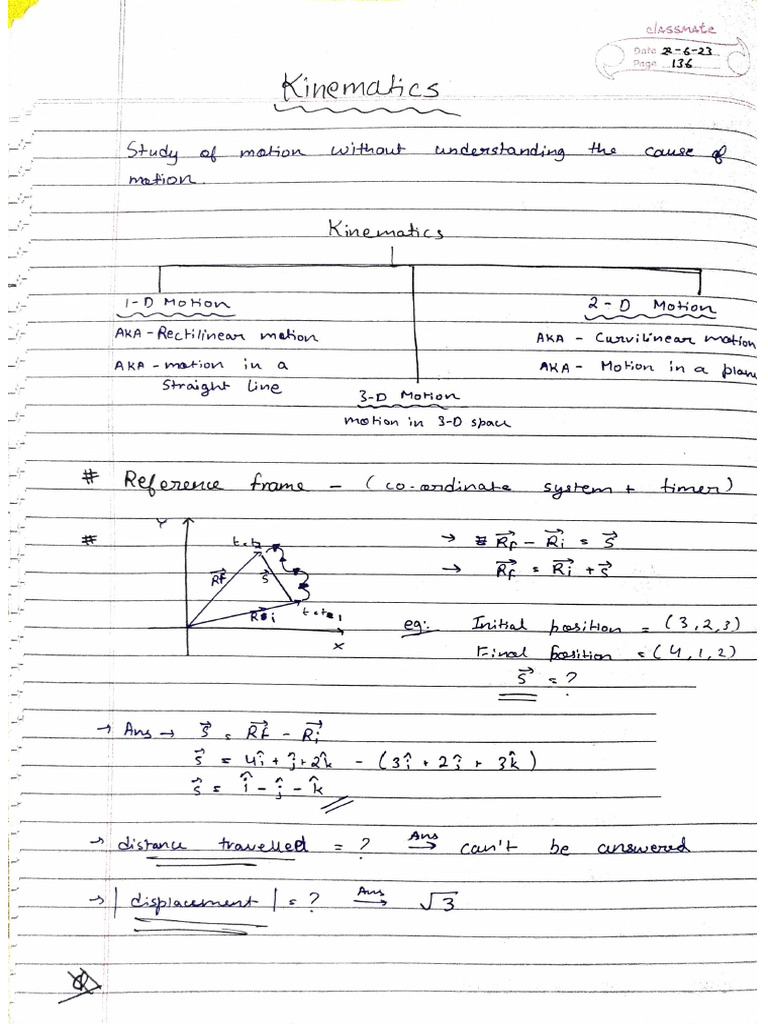 classmate
Date 2-6-23
Page 136
Kinematics
Study of motion without understanding the cause of
motion.
Kinematics
1-D Motion
AKA - Rectilinear motion
AKA - motion in a
straight line
2-D Motion
AKA - Curvilinear motion
AKA - Motion in a plane
3-D Motion
motion in 3-D space
# Reference frame - (co-ordinate system + timer)
#
Y
t=t2
R⃗f
S⃗
R⃗i
t=t1
X
→ R⃗f - R⃗i = S⃗
→ R⃗f = R⃗i + S⃗
eg: Initial position = (3,2,3)
Final position = (4,1,2)
S⃗ = ?
→ Ans → S⃗ = R⃗f - R⃗i
S⃗ = 4î + ĵ + 2k̂ - (3î + 2ĵ + 3k̂)
S⃗ = î - ĵ - k̂
→ distance travelled = ? Ans → can't be answered
→ |displacement| = ? Ans → √3